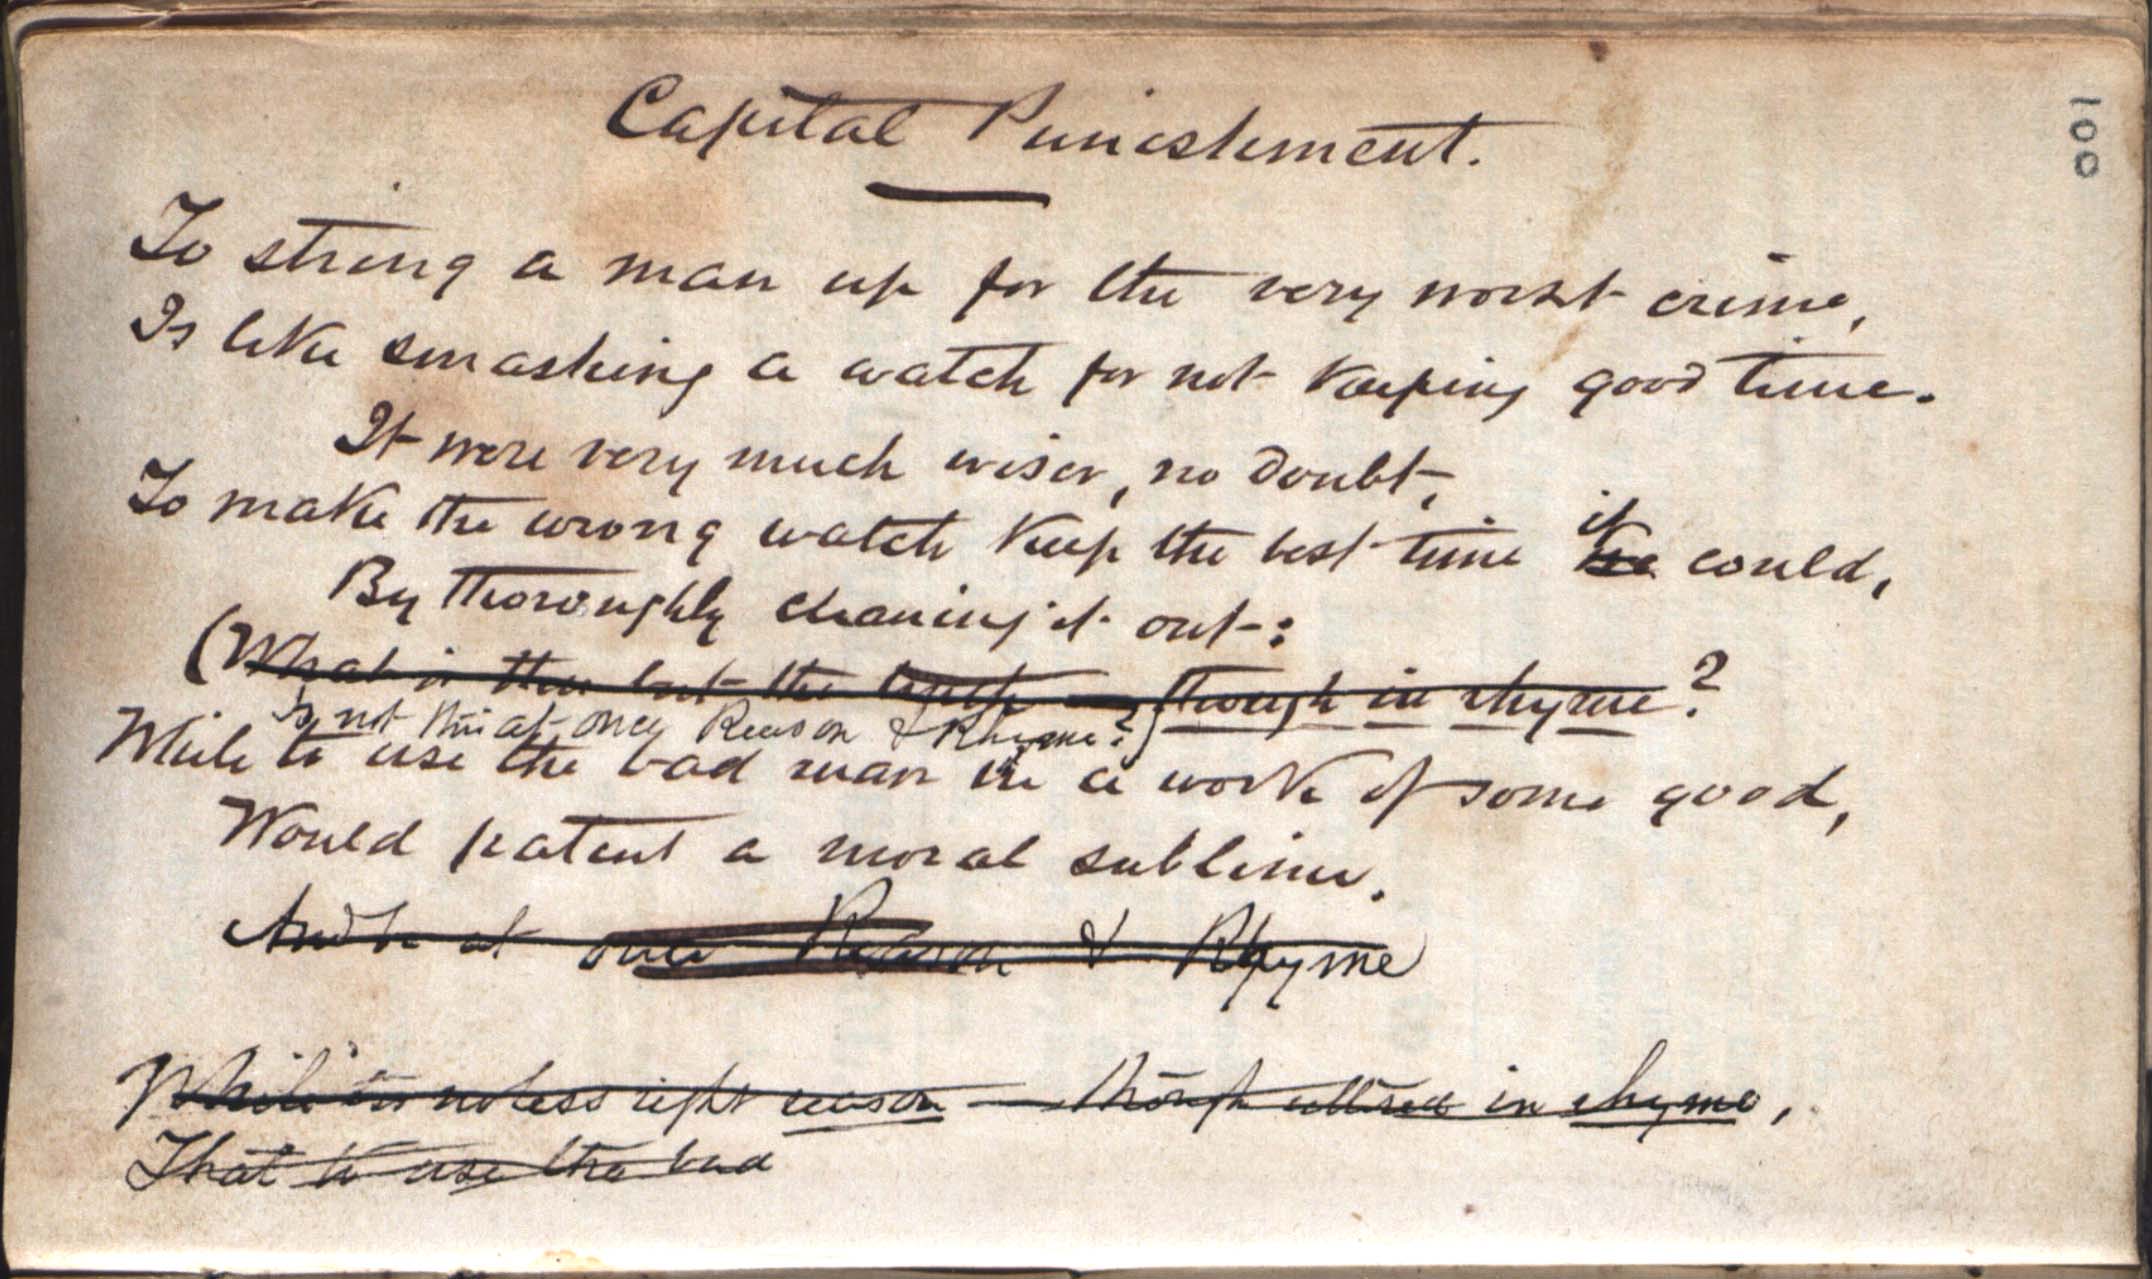 100
Capital Punishment.
To string a man up for the very worst crime,
Is like smashing a watch for not keeping good time.
It were very much wiser, no doubt,
it
To make the wrong watch keep the best time he could,
By thoroughly cleaning it out:
(What is this but the truth — though in rhyme?
Is not this at once Reason & Rhyme?)
While to use the bad man in a work of some good,
Would patent a moral sublime.
And be at once Reason & Rhyme
While 'tis no less right reason — though uttered in rhyme,
That to use the bad